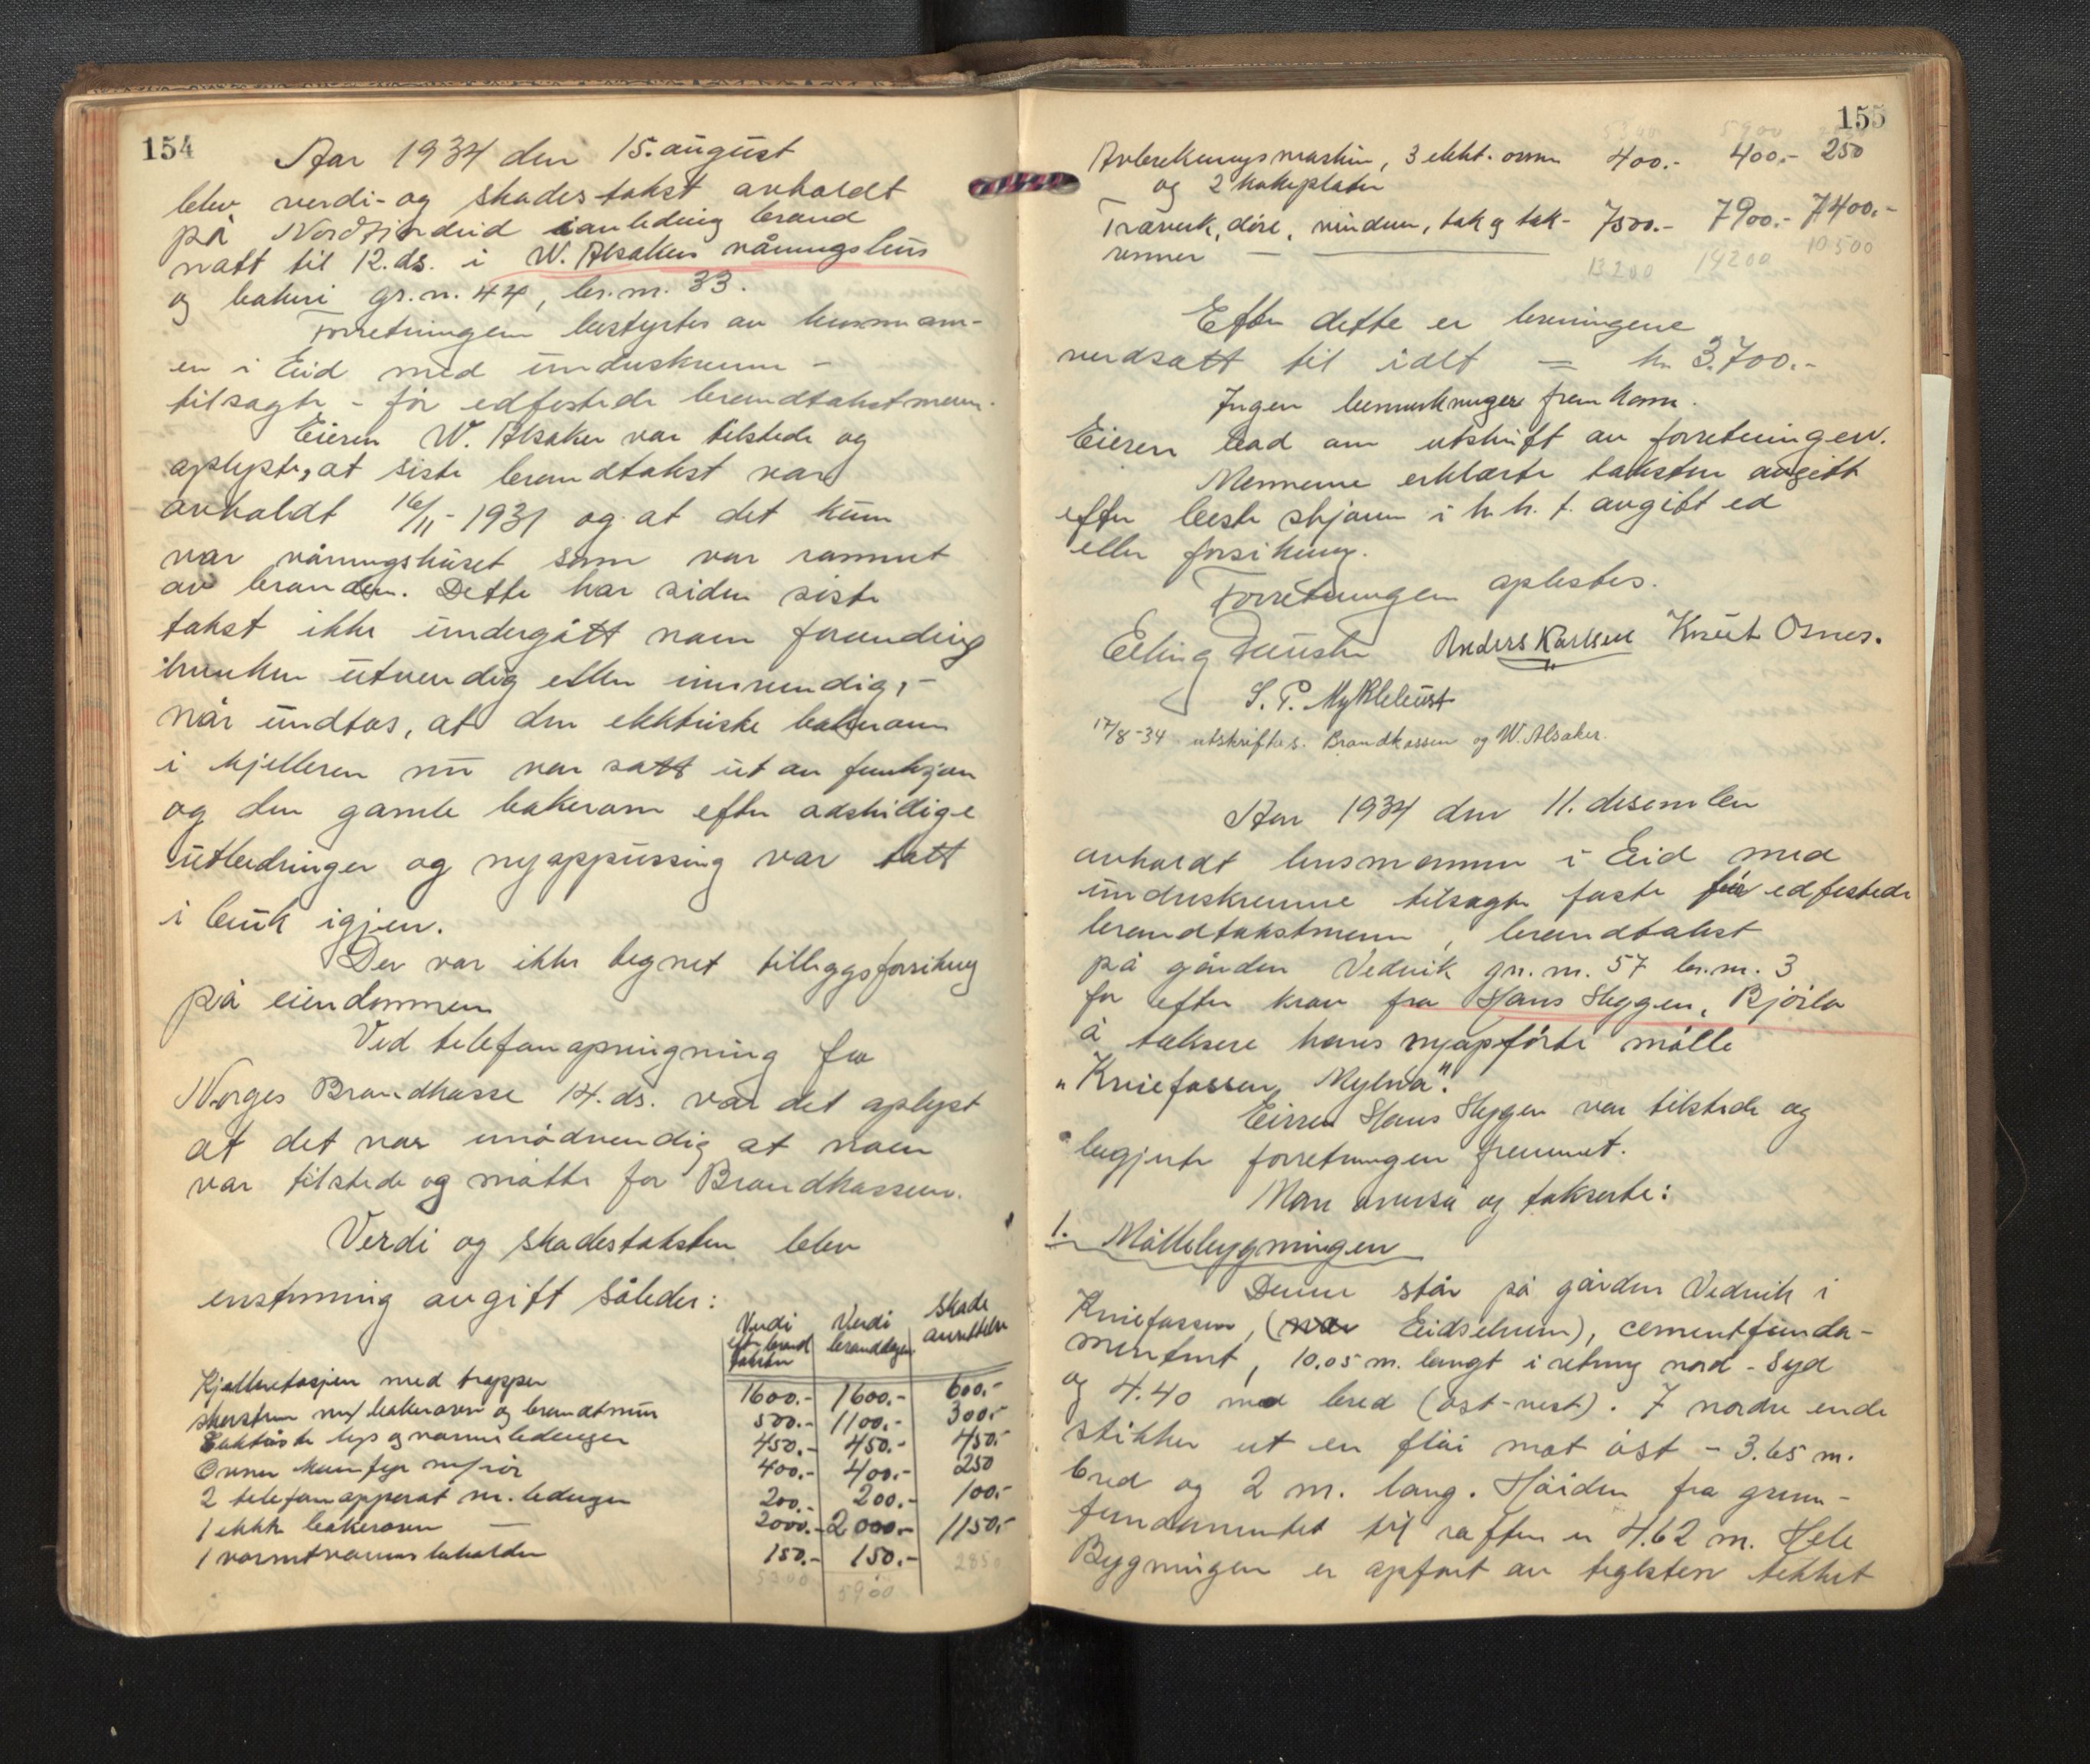 154
Aar 1934 den 15. august
blev verdi- og skadestakst avholdt
på Nordfjordeid ianledning brand
natt til 12. ds. i W. Alsakers våningshus
og bakeri gr.n. 44, br.nr. 33.
Forretningen bestyrtes av lensmann-
en i Eid med underskrevne -
tilsagte - før edfestede brandtakstmenn.
Eieren W. Alsaker var tilstede og
oplyste, at siste brandtakst var
avholdt 16/11-1931 og at det kun
var våningshuset som var rammet
av branden. Dette har siden siste
takst ikke undergått noen forandring
hverken utvendig eller innvendig, -
når undtas, at den elektriske bakerovn
i kjelleren nu var satt ut av funksjon
og den gamle bakerovn efter adskillige
utbedringer og nyoppussing var tatt
i bruk igjen.
Der var ikke tegnet tilleggsforsikring
på eiendommen
Ved telefonopringning fra
Norges Brandkasse 14. ds. var det oplyst
at det var unødvendig at noen
var tilstede og møtte for Brandkassen.
Verdi og skadestaksten blev
enstemmig avgitt således:
Verdi eft. brand taksten Verdi branddagen Skade anrettelse
Kjelleretasjen med trapper 1600.- 1600.- 600.-
skorsten m/ bakerovn og brandtmur 500.- 1100.- 300.-
Elektriske lys og varmeledninger 450.- 450.- 450.-
Ovner komfyr m/rør 400.- 400.- 250
2 telefonapparat m. ledninger 200.- 200.- 100.-
1 elekt. bakerovn 2000.- 2000.- 1150.-
1 varmtvannsbeholder 150.- 150.-
5300 5900 2850
155
5300 5900
Avbrekningsmaskin, 3 elekt. ovner 400.- 400.- 250
og 2 kokeplater
Træverk, døre, vinduer, tak og tak- 7500.- 7900.- 7400.-
renner
13200 14200 10500
Efter dette er levningene
verdsatt til ialt = kr. 3.700.-
Ingen bemerkninger fremkom.
Eieren bad om utskrift av forretningen.
Mennene erklærte taksten avgitt
efter beste skjønn i h.h.t. avgitt ed
eller forsikring.
Forretningen oplestes.
Elling Anders Karlsen Knut Osnes.
S. P. Myklebust
17/8-34 utskriftes. Brandkassen og W. Alsaker.
Aar 1934 den 11. desember
avholdt lensmannen i Eid med
underskrevne tilsagte faste før edfestede
brandtakstmenn, brandtakst
på gården Vedvik gr.nr. 57 br.nr. 3
for efter krav fra Hans Heggen, Bjørlo
å taksere hans nyopførte mølle
"Kniefossen Mylna".
Eieren Hans Heggen var tilstede og
begjerte forretningen fremmet.
Man overså og takserte:
1. Møllebygningen
Denne står på gården Vedvik i
Kniefossen, (Eidselven), cementfunda-
mentert, 10.05 m. langt i retning nord - syd
og 4.40 m bred (øst-vest). I nordre ende
stikker ut en fløi mot øst - 3.65 m.
bred og 2 m. lang. Høiden fra grunn-
fundamentet til raften er 4.62 m. Hele
Bygningen er opført av teglsten tekket